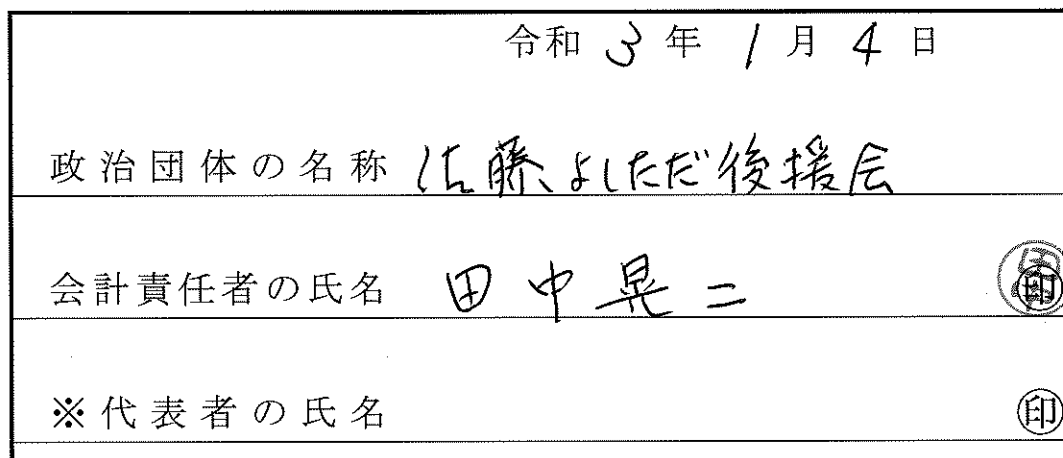 令和 3 年 1 月 4 日
政治団体の名称 佐藤よしただ後援会
会計責任者の氏名 田中晃二 ㊞
※代表者の氏名 ㊞